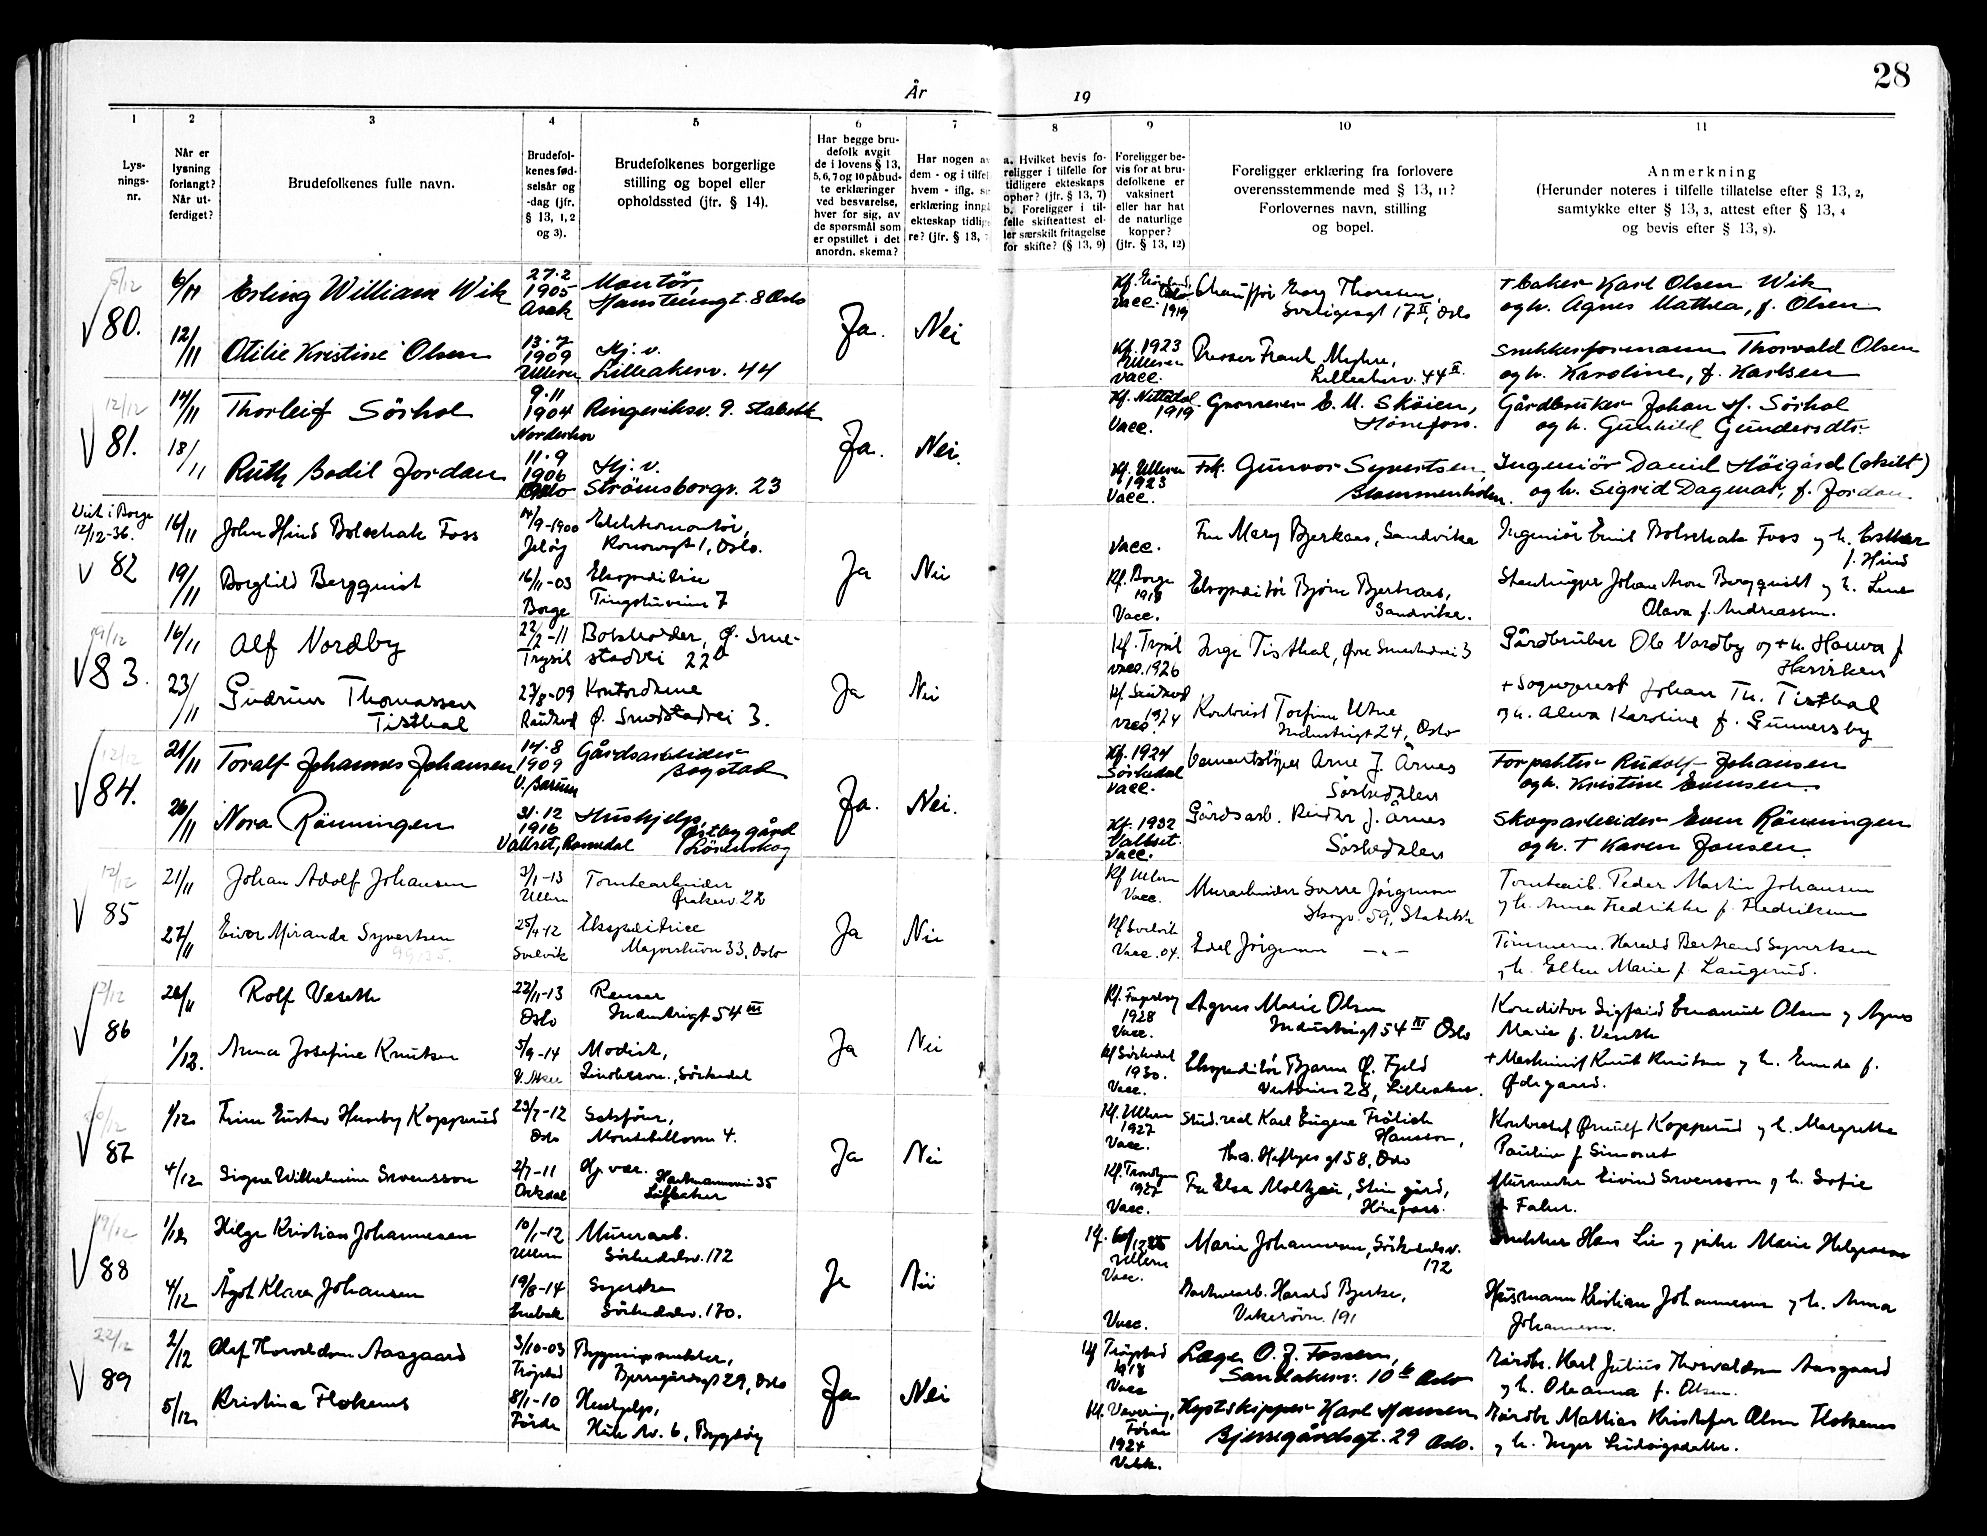 28
År
19
1
2
3
4
5
6
7
8
9
10
11
Lys-
nings-
nr.
Når er
lysning
forlangt?
Når ut-
ferdiget?
Brudefolkenes fulle navn.
Brudefol-
kenes fød-
selsår og
-dag (jfr.
§ 13, 1, 2
og 3).
Brudefolkenes borgerlige
stilling og bopel eller
opholdssted (jfr. § 14).
Har begge bru-
defolk avgit
de i lovens § 13,
5, 6, 7 og 10 påbud-
te erklæringer
ved besvarelse,
hver for sig, av
de spørsmål som
er opstillet i det
anordn. skema?
Har nogen av
dem - og i tilfel
hvem - iflg.
erklæring inng
ekteskap tidlig
re? (jfr. § 13,
a. Hvilket bevis fo-
religger i tilfelle for
tidligere ekteskaps
ophør? (jfr. § 13, 7)
b. Foreligger i til-
felle skifteattest el-
ler særskilt fritagelse
for skifte? (§ 13, 9)
Foreligger be-
vis for at bru-
defolkene er
vaksinert
eller har hat
de naturlige
kopper?
(jfr. § 13, 12)
Foreligger erklæring fra forlovere
overensstemmende med § 13, 11?
Forlovernes navn, stilling
og bopel.
Anmerkning
(Herunder noteres i tilfelle tillatelse efter § 13, 2,
samtykke efter § 13, 3, attest efter § 13, 4
og bevis efter § 13, 8).
80.
6/11
Erling William Wik
27.2
1905
Asak
Montør,
Hansteensgt. 8 Oslo
Ja.
Nei
Vacc. 1919
Chauffør Georg Thorsen,
Sverigesgt 17 II, Oslo
+ baker Karl Olsen Wik
og h. Agnes Mathea, f. Olsen
12/11
Otilie Kristine Olsen
13.7
1909
Ullern
Hj. v.
Lilleakerv. 44
Kf. 1923
Ullern
Vacc.
Presser Frank
Lilleakerv. 44 II
Snekkerformann Thorvald Olsen
og h. Karoline, f. Karlsen
12/12
81.
14/11
Thorleif Sörhol
9.11
1904
Norderhov
Ringeriksv. 9. Stabekk
Ja.
Nei.
Kf. Nittedal
1919
Vacc.
Grosserer E. M. Sköien,
Hönefoss.
Gårdbruker Johan H. Sörhol
og h. Gunhild Gundersdtr.
18/11
Ruth Bodil Jordan
11.9
1906
Oslo
Hj. v.
Strömsborgv. 23
Kf. Ullern
1923
Vacc.
Frk. Gunvor Syvertsen
Blommenholm.
Ingeniör Daniel Höigård (skilt)
og h. Sigrid Dagmar, f. Jordan.
Viet i Borge
12/12-36.
82
16/11
John Hind Bolschak Foss
14/9-1900
Jeløy
Elektromontör,
1, Oslo.
Ja
Nei
Vacc.
Fru Mary Bjerkaas, Sandvika
Ingeniör Emil Bolschak Foss og h. Esther
f. Hind
19/11
Borghild Bergquist
16/11-03
Borge
Ekspeditrise
Tingstuveien 7
Kf. Borge
1918
Vacc.
Ekspeditör Björn Bjerkaas,
Sandvika.
Stenhugger Johan Aron Bergquist og h. Lene
Olava f. Andreassen.
19/12
83.
16/11
Alf Nordby
22/2-11
Trysil
Botsholder, Ø. Sme-
stadvei 22 b
Ja
Nei
Kf. Trysil
vacc. 1926
Inge Tisthal, Øvre Smestadvei 3
Gårdbruker Ole Nordby og + h. Hanna f
23/11
Gudrun Thomassen
Tisthal
27/8-09
Kontordame
Ø. Smestadvei 3.
1924
vacc.
Kontorist Torfinn Utne
Industrigt 24, Oslo
+ Sogneprest Johan Th. Tisthal
og h. Alma Karoline f. Gunnersby
12/12
84.
21/11
Toralf Johannes Johansen
14.8
1909
V. Bærum
Gårdsarbeider
Bogstad
Ja.
Nei.
Kf. 1924
Sörkedal
Vacc.
Cementstöper Arne J. Årnes
Sörkedalen
Forpakter Rudolf Johansen
og h. Kristine Evensen.
26/11
Nora Rönningen
31.12
1916
Vallset, Romedal
Hushjelp,
Østby gård
Lörenskog
Kf. 1932
Vallset.
Vacc.
Gårdsarb. Reidar J. Årnes
Sörkedalen
Skogsarbeider Even Rönningen
og h. + Karen Jonsen.
12/12
85
21/11
Johan Adolf Johansen
3/1-13
Ullern
Tomtearbeider
Ørakerv. 22
Ja
Nei
Kf Ullern
Vacc.
Murarbeider Sverre Jörgensen
Skogv. 59, Stabekk
Tomtearb. Peder Martin Johansen
og h. Anna Fredrikke f. Fredriksen
27/11
Eivor Miranda Syvertsen
25/4-12
Svelvik
Ekspeditrice
Majorstuvn 33, Oslo
Kf Svelvik
Vacc. 04.
Edel Jörgensen — „ —
Tömmerm. Harald Bertrand Syvertsen
og h. Ellen Marie f. Laugerud.
12/12
86
26/11
Rolf Veseth
22/11-13
Oslo
Renser
Industrigt 54 III
Ja
Nei
Kf. Fagerborg
1928
Vacc.
Agnes Marie Olsen
Industrigt 54 III Oslo
Konditor Sigfrid Emanuel Olsen og Agnes
Marie f. Veseth
1/12.
Anna Josefine Knutsen
5/9-14
V. Aker
Modist,
Sörkedal
Kf Sörkedal
1930.
Vacc.
Ekspeditör Bjarne Ø. Fjeld
28, Lilleaker.
+ Maskinist Knut Knutsen og h. Emma f.
Ødegaard.
87
1/12
Finn Gustav Humby Kopperud
23/7-12
Oslo
Salsjör,
Montebelloveien 4.
Ja
Nei
Kf. Ullern
1927
Vacc.
Stud. real Karl Eugene Frölich
Hansson,
Ths. Heftyes gt 58, Oslo
Kontorchef Ørnulf Kopperud og h. Margrethe
Pauline f Simonst
4/12
Signe Wilhelmine Svensson
2/7-11
Orkdal
Hj. vær.
35
Lilleaker
1927
Vacc.
Fru Elsa Moltzau, Stein gård,
Hönefoss.
Murmester Eivind Svensson og h. Sofie
f. Falun.
19/12
88
1/12
Helge Kristian Johannesen
10/1-12
Ullern
Murerarb.
Sörkedalsv. 172
Ja
Nei
Kf.
Ullern
Vacc.
Marie Johannesen, Sörkedalsv.
172
Snekker Hans Lie og pike Marie Helgesen
4/12
Ågot Klara Johansen
19/8-14
Enebak
Syerske
Sörkedalsv. 170.
Vacc.
Harald Bjerke,
191
Husmann Kristian Johannesen og h. Anna
Johannesen.
22/12
89
2/12
Olaf Thorvaldsen Aasgaard
3/10-03
Trögstad
Bygningssnekker,
Bjerregårdsgt 29, Oslo
Ja
Nei
Kf Trögstad
1918
Vacc
Læge O. J. Fossen,
Sandakerv. 10 b Oslo
Gårdbr. Karl Julius Thorvaldsen Aasgaard
og h. Oleanna f. Olsen.
5/12
Kristina Flokenes
8/1-10
Förde
Hushjelp,
Huk Av. 6, Bygdöy
Kf. Vevring,
Förde
1924
Vakk.
Lystskipper Karl Hansen
Bjerregårdsgt. 29 Oslo.
Gårdbr. Mattias Kristofer Olsen Flokenes
og h. Inger Ludvigsdatter.